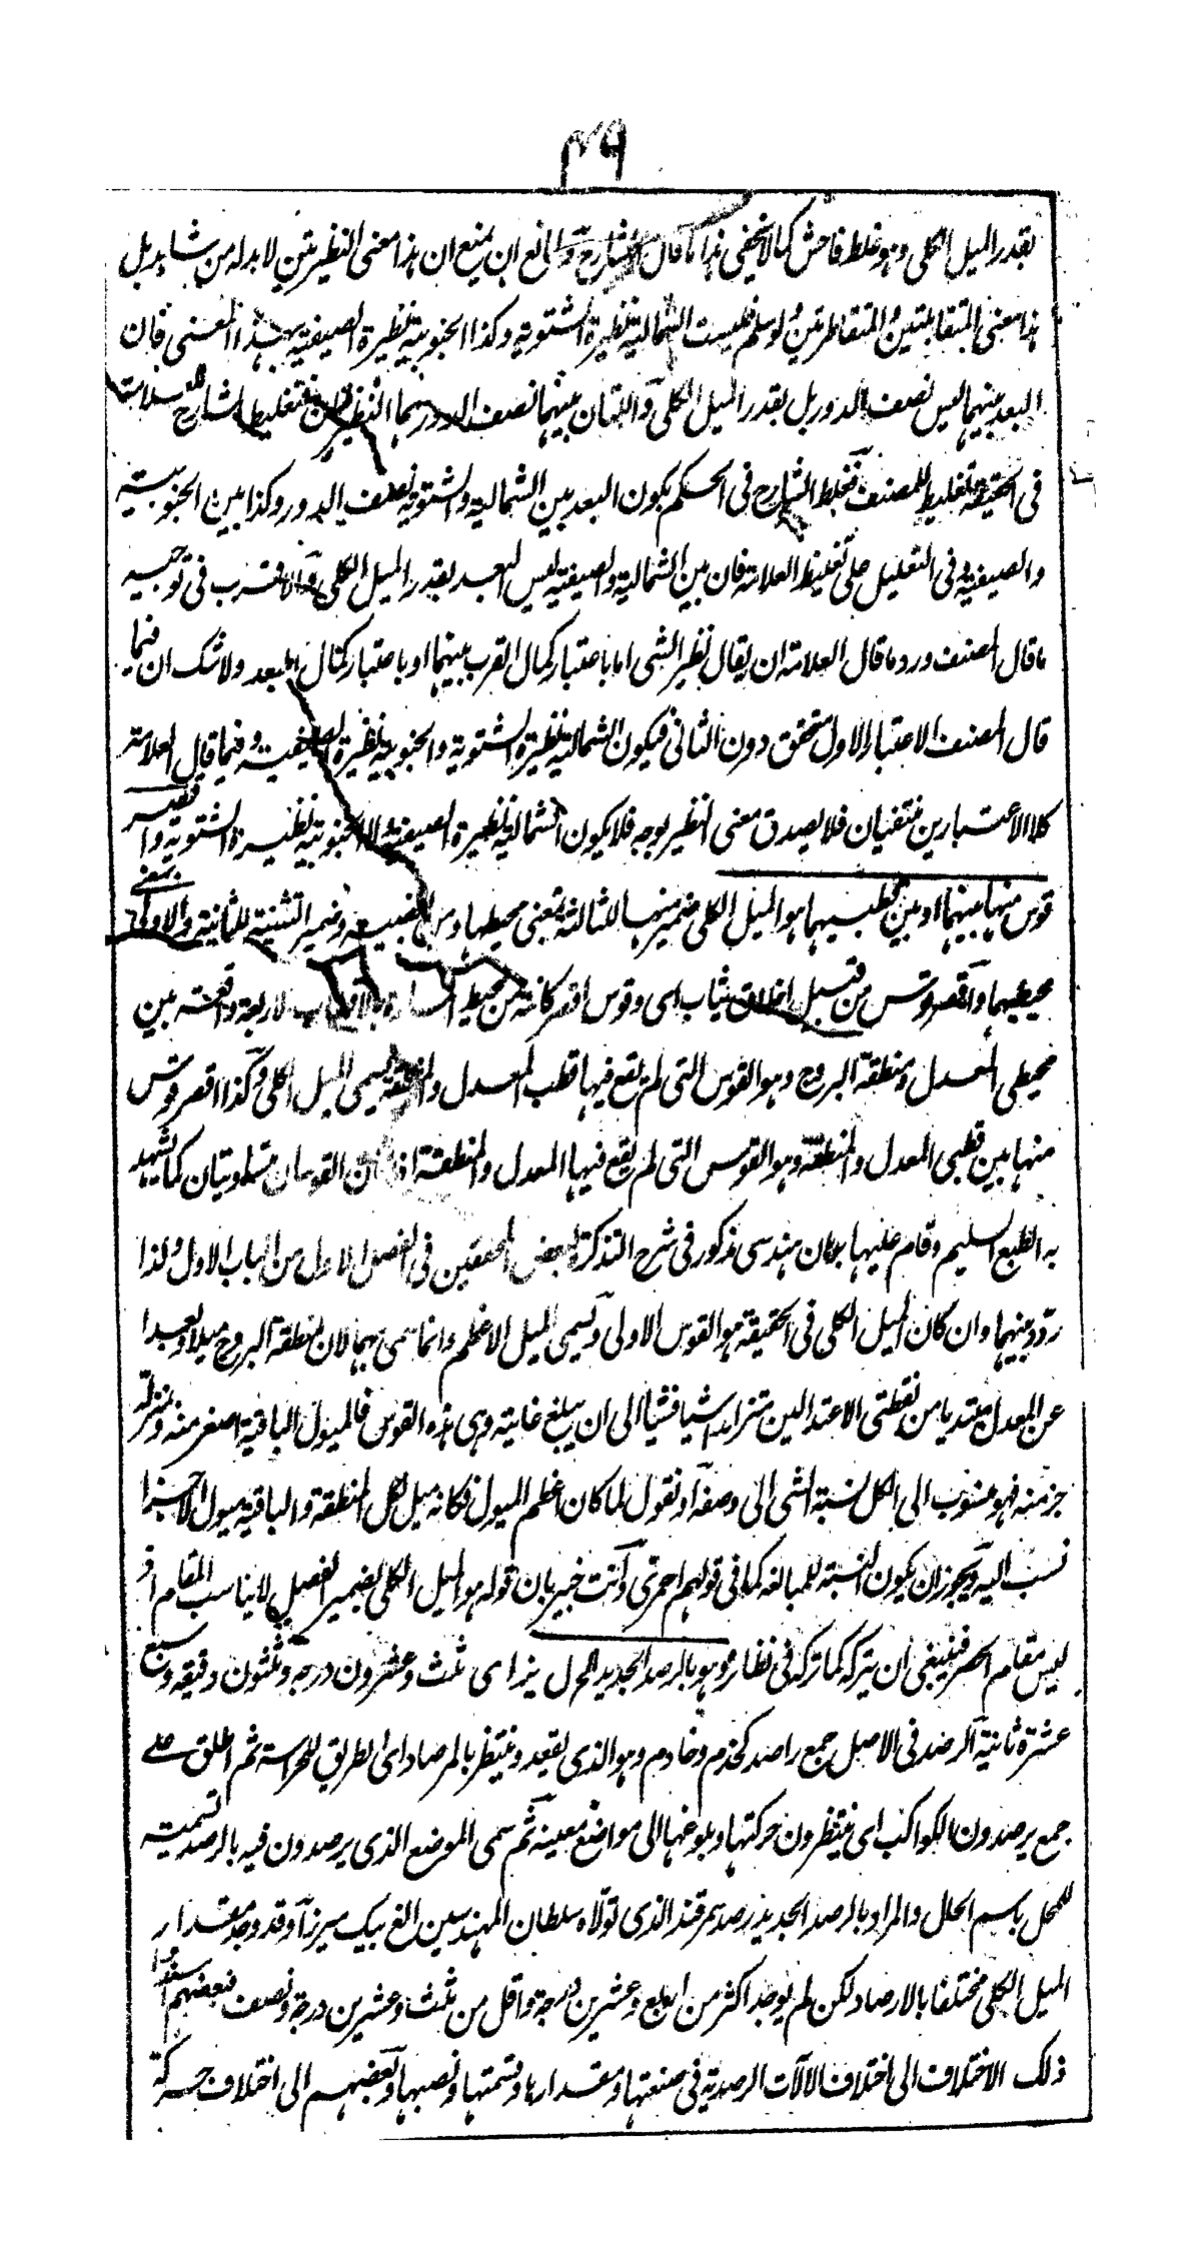 ٤٩
بقدر الميل الكلى وهو غلط فاحش كما لا يخفى هذا ما قال الشارح ولمانع ان يمنع ان هذا معنى النظيرتين لا بد له من شاهد بل
هذا معنى المتقابلتين المتقاطرتين ولو سلم فليست الشمالية نظيرة الشتوية وكذا الجنوبية نظيرة الصيفية بهذا المعنى فان
البعد بينهما ليس نصف الدور بل بقدر الميل الكلى واللتان بينهما نصف الدور هما النظيرتان فتغليط الشارح للعلامة
فى الحقيقة تغليط للمصنف فغلط الشارح فى الحكم بكون البعد بين الشمالية والشتوية نصف الدور وكذا بين الجنوبية
والصيفية وفى التعليل على تغليط العلامة فان بين الشمالية والصيفية ليس البعد بقدر الميل الكلى والاقرب فى توجيه
ما قال المصنف ورد ما قال العلامة ان يقال نظير الشئ اما باعتبار كمال القرب بينهما او باعتبار كمال البعد ولا شك ان فيما
قال المصنف الاعتبار الاول متحقق دون الثانى فيكون الشمالية نظيرة الشتوية والجنوبية نظيرة الصيفية وفيما قال العلامة
كلا الاعتبارين منتفيان فلا يصدق معنى النظير بوجه فلا يكون الشمالية نظيرة الصيفية ولا الجنوبية نظيرة الشتوية واقصر
قوس منها بينهما او بين قطبيهما هو الميل الكلى ضمير منها للثالثة بمعنى محيطها وضمير التثنية للثانية والاولى بمعنى
محيطيهما واقصر قوس من قبيل اخلاق ثياب اى وقوس اقصر كائنة من محيط المارة بالاقطاب الاربعة واقعة بين
محيطى المعدل ومنطقة البروج وهو القوس التى لم تقع فيها قطب المعدل والمنطقة يسمى الميل الكلى وكذا اقصر قوس
منها بين قطبى المعدل والمنطقة وهو القوس التى لم يقع فيها المعدل والمنطقة اذ هاتان القوسان متساويتان كما يشهد
به الطبع السليم وقام عليها برهان هندسى مذكور فى شرح التذكرة لبعض المحققين فى الفصل الاول من الباب الاول ولذا
ردد بينهما وان كان الميل الكلى فى الحقيقة هو القوس الاولى ويسمى الميل الاعظم وانما سمى بهما لان لمنطقة البروج ميلا وبعدا
عن المعدل مبتديا من نقطتى الاعتدالين متزايدا شيئا فشيئا الى ان يبلغ غايته وهى هذه القوس فالميول الباقية اصغر منه وبمنزلة
جزء منه فهو منسوب الى الكل نسبة الشئ الى وصفه او نقول لما كان اعظم الميول فكانه ميل لكل المنطقة والباقية ميول الاجزاء
نسب اليه ويجوز ان يكون النسبة للمبالغة كما فى قولهم احمرى وانت خبير بان قوله هو الميل الكلى بضمير الفصل لا يناسب المقام اذ
ليس مقام الحصر فينبغى ان يتركه كما تركه فى نظائره وهو بالرصد الجديد كج ل يز اى ثلث وعشرون درجة وثلثون دقيقة وسبع
عشرة ثانية الرصد فى الاصل جمع راصد كخدم وخادم وهو الذى يقعد وينتظر بالمرصاد اى الطريق للحراسة ثم اطلق على
جمع يرصدون الكواكب اى ينتظرون حركتها وبلوغها الى مواضع معينة ثم سمى الموضع الذى يرصدون فيه بالرصد تسمية
للمحل باسم الحال والمراد بالرصد الجديد رصد سمرقند الذى تولاه سلطان المهندسين الغ بيك ميرزا وقد وجد مقدار
الميل الكلى مختلفا بالارصاد لكن لم يوجد اكثر من اربع وعشرين درجة واقل من ثلث وعشرين درجة ونصف فبعضهم اسندوا
ذلك الاختلاف الى اختلاف الآلات الرصدية فى صنعتها ومقدارها وقسمتها ونصبها وبعضهم الى اختلاف حركة